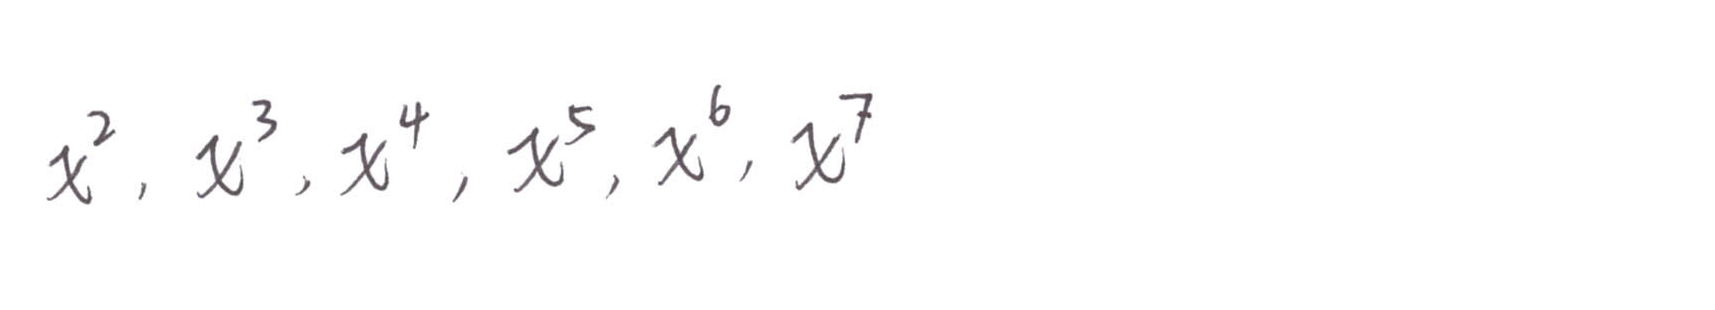 x², x³, x⁴, x⁵, x⁶, x⁷